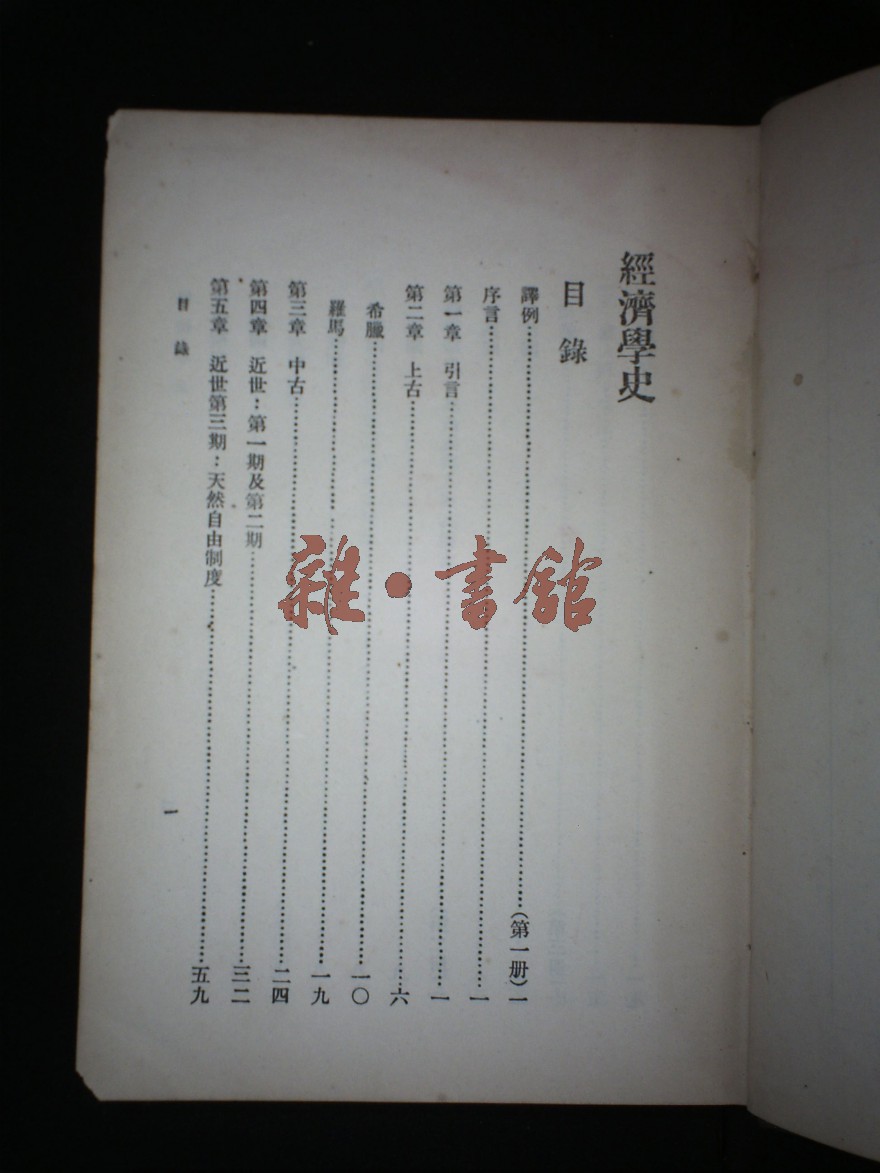 經濟學史
目錄
譯例……(第一册)一
序言……一
第一章 引言……一
第二章 上古……六
希臘……一〇
羅馬……一九
第三章 中古……二四
第四章 近世:第一期及第二期……三二
第五章 近世第三期:天然自由制度……五九
目錄
一
雜·書館